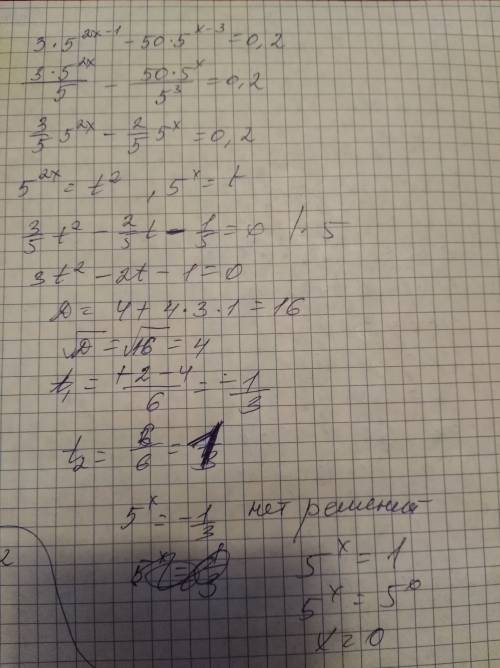 3·5^(2x-1) - 50·5^(x-3) = 0,2
3·5^(2x)/5 - 50·5^x/5^3 = 0,2
3/5 5^(2x) - 2/5 5^x = 0,2
5^(2x) = t^2 , 5^x = t
3/5 t^2 - 2/5 t - 1/5 = 0 /·5
3t^2 - 2t - 1 = 0
D = 4 + 4·3·1 = 16
√D = √16 = 4
t₁ = +2-4/6 = -1/3
t₂ = 6/6 = 1
5^x = -1/3 нет решений
5^x = 1
5^x = 5^0
x = 0
2